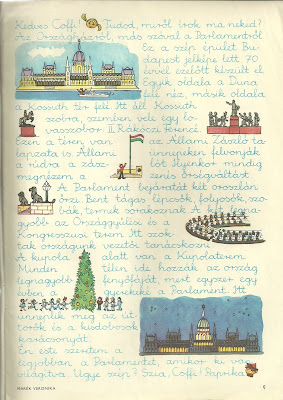 Kedves Coffi! Tudod, miről írok ma neked?
Az Országházról, más szóval a Parlamentről.
Ez a szép épület Bu-
dapest jelképe lett 70
évvel ezelőtt készült el.
Egyik oldala a Duna
felé néz, másik oldala
a Kossuth tér felé. Itt áll Kossuth
szobra, szemben vele egy lo-
vasszobor: II. Rákóczi Ferencé.
Ezen a téren van az Állami Zászló is
lánzata is. Állami ünnepeken felvonják
a rúdra a zász- lót. Ilyenkor mindig
megnézem a zenés őrségváltást.
A Parlament bejáratát két oroszlán
őrzi. Bent tágas lépcsők, folyosók, szo-
bák, termek sorakoznak. A
gyobb: az Országgyűlési és a
Kongresszusi terem. Itt szok-
tak országunk vezetői tanácskozni.
A kupola alatt van a Kupolaterem.
Minden télen ide hozzák az ország
legnagyobb fenyőfáját, mert egyszer egy
évben a gyerekeké a Parlament. Itt
ünneplik meg az út-
törők és a kisdobosok
karácsonyát.
Én este szeretem a
legjobban a Parlamentet, amikor ki van
világítva. Ugye szép? Szia, Coffi! Paprika
MARÉK VERONIKA
5